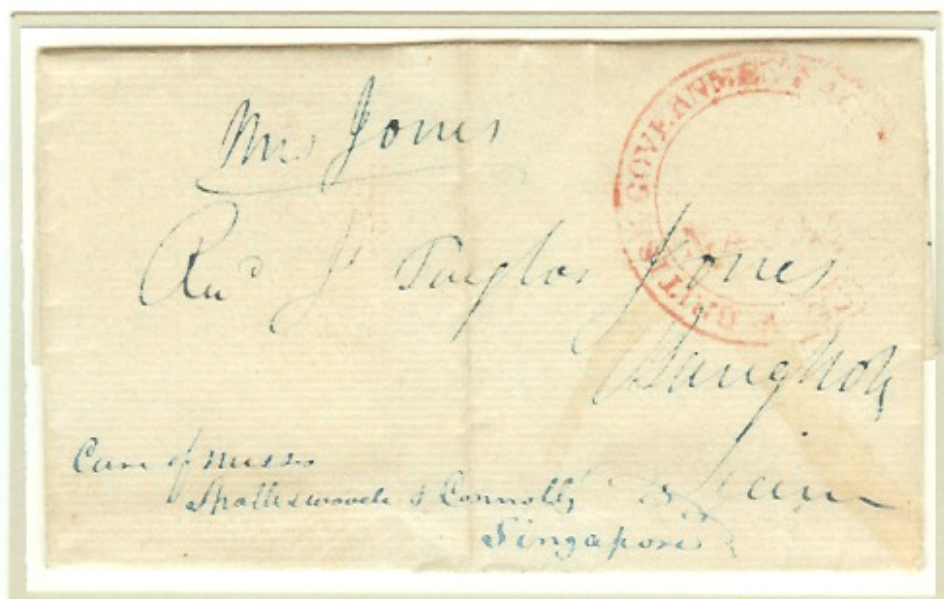 Mrs Jones
Revd J Taylor Jones
Bangkok
Siam
Care of Messrs
Spottiswoode & Connolly
Singapore
BRITISH GOVERNMENT